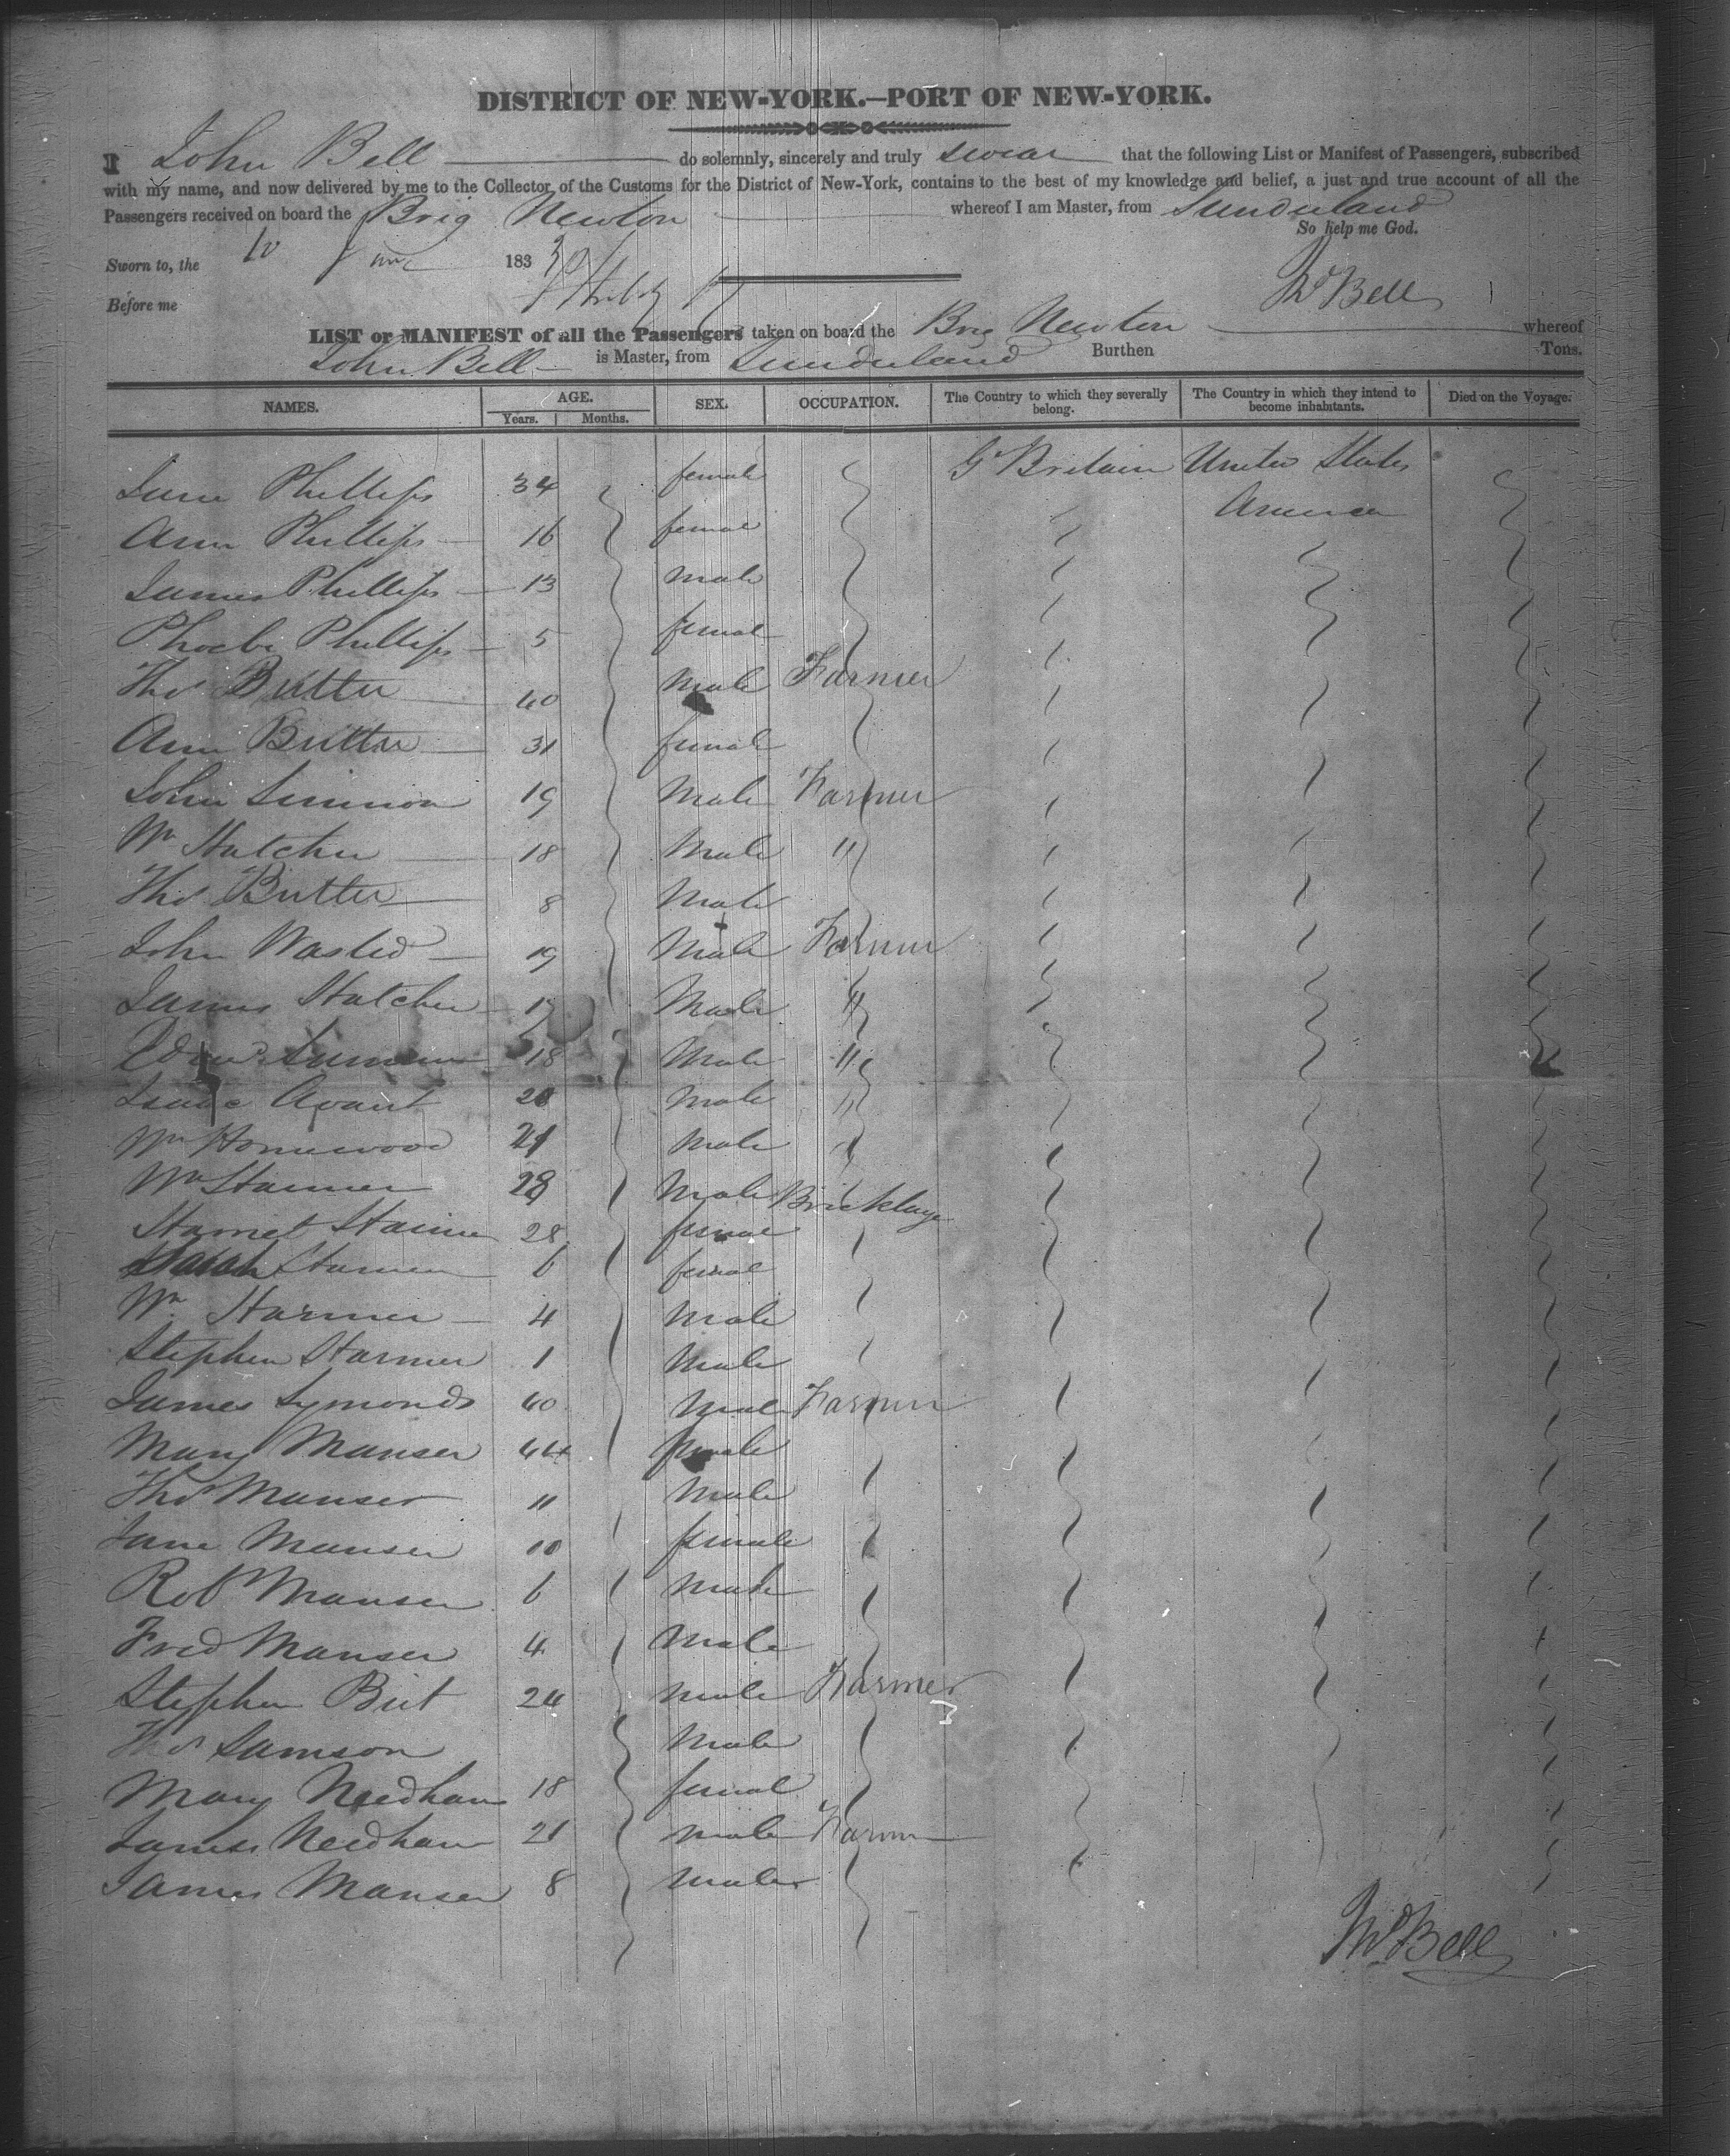 DISTRICT OF NEW-YORK.—PORT OF NEW-YORK.
I John Bell do solemnly, sincerely and truly swear that the following List or Manifest of Passengers, subscribed
with my name, and now delivered by me to the Collector of the Customs for the District of New-York, contains to the best of my knowledge and belief, a just and true account of all the
Passengers received on board the Brig Newton whereof I am Master, from Sunderland
So help me God.
Sworn to, the 10 June 183
Jno Bell
Before me
LIST or MANIFEST of all the Passengers taken on board the Brig Newton whereof
John Bell is Master, from Sunderland Burthen Tons.
NAMES. AGE. SEX. OCCUPATION. The Country to which they severally belong. The Country in which they intend to become inhabitants. Died on the Voyage.
Years. Months.
Jane Phillips 34 female Gt Britain United States
America
Ann Phillips 16 female
James Phillips 13 male
Phoebe Phillips 5 female
Thos Butter 40 Male Farmer
Ann Butter 31 female
John Simmon 19 Male Farmer
Wm Hatcher 18 Male "
Thos Butter 8 Male
John Wasted 19 Male Farmer
James Hatcher 17 Male "
18 Male "
Isaac Avant 20 Male "
Wm Homewood 21 Male
Wm Starmer 28 Male Bricklayer
Harriet Starmer 28 female
Sarah Starmer 6 female
Wm Starmer 4 Male
Stephen Starmer 1 Male
James Symonds 40 Male Farmer
Mary Manser 44 female
Thos Manser 11 Male
Jane Manser 10 female
Robt Manser 6 Male
Fred Manser 4 Male
Stephen Birt 24 Male Farmer
Thos Samson Male
Mary Needham 18 female
James Needham 21 male Farmer
James Manser 8 male
Jno Bell